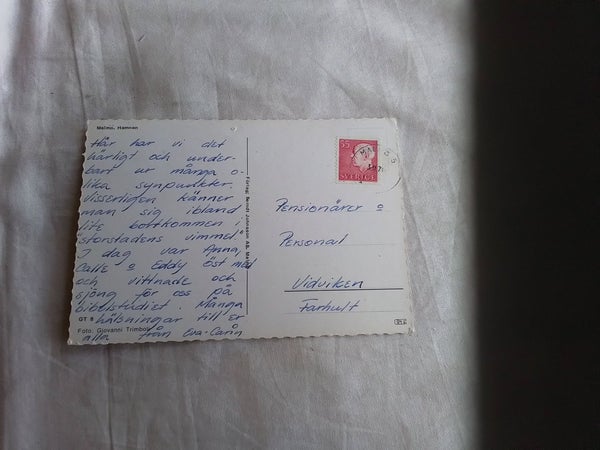 Malmö. Hamnen
Här har vi det
härligt och under-
bart ur många o-
lika synpunkter.
Visserligen känner
man sig ibland
lite bortkommen i
"storstadens vimmel."
I dag var Anna,
Calle o Eddy Öst med
och vittnade och
sjöng för oss på
bibelstudiet. Många
hälsningar till er
alla från Eva-Carin
GT 8
Foto: Giovanni Trimboli
Förlag Bendt Johnsson AB,
55
SVERIGE
Pensionärer o
Personal
Vidviken
Farhult